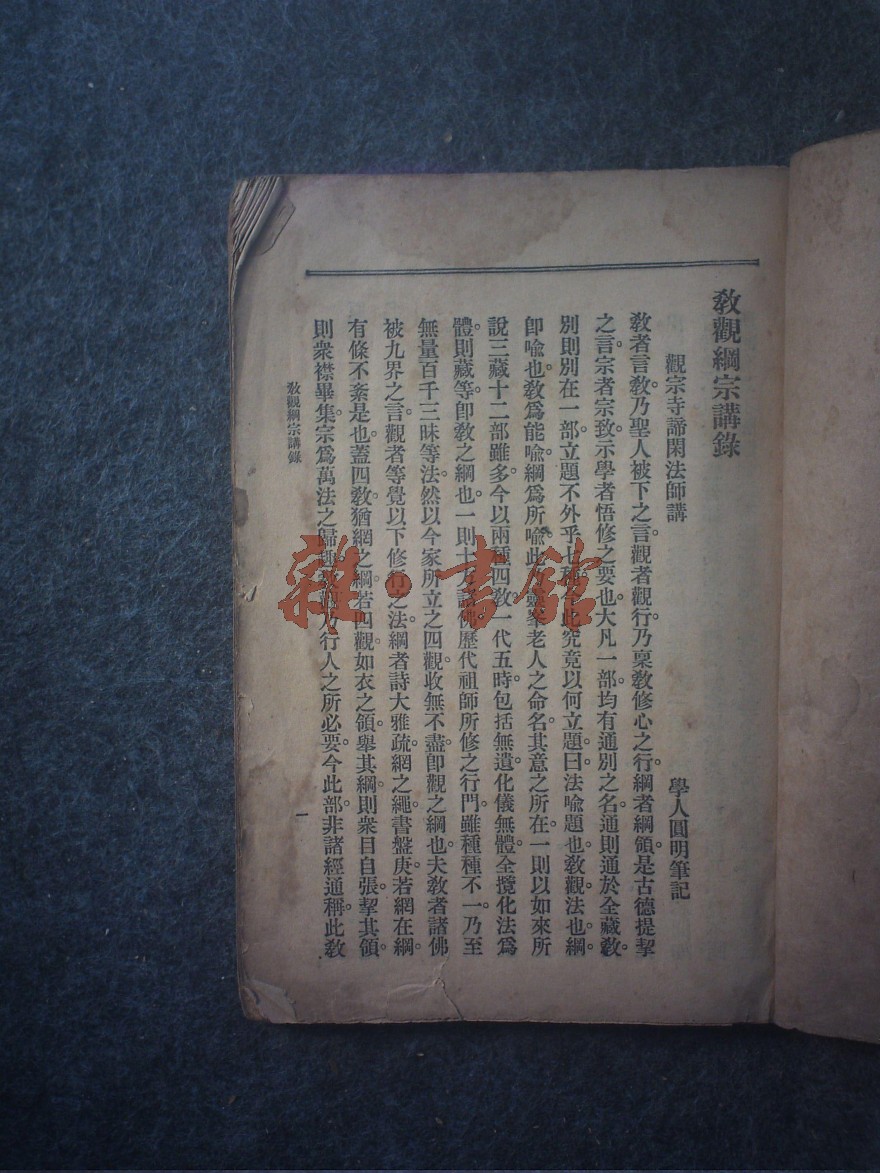 教觀綱宗講錄
觀宗寺諦閑法師講
學人圓明筆記
教者言教。乃聖人被下之言。觀者觀行。乃稟教修心之行。綱者綱領。是古德提挈
之言。宗者宗致。示學者悟修之要也。大凡一部。均有通別之名。通則通於全藏教。
別則別在一部。立題不外乎七種。此究竟以何立題。曰。法喻題也。教觀法也。綱
即喻也。教爲能喻。綱爲所喻。此
峯老人之命名。其意之所在。一則以如來所
說三藏十二部雖多。今以兩種四教。一代五時。包括無遺。化儀無體。全攬化法爲
體。則藏等。即教之綱也。一則十方諸佛。歷代祖師所修之行門。雖種種不一。乃至
無量百千三昧等法。然以今家所立之四觀。收無不盡。即觀之綱也。夫教者。諸佛
被九界之言。觀者。等覺以下修行之法。綱者。詩大雅疏。網之繩。書盤庚。若網在綱。
有條不紊是也。蓋四教猶網之綱。若四觀。如衣之領。舉其綱。則衆目自張。挈其領。
則衆襟畢集。宗爲萬法之歸
行人之所必要。今此部。非諸經通稱。此教
教觀綱宗講錄
一
雜·書館